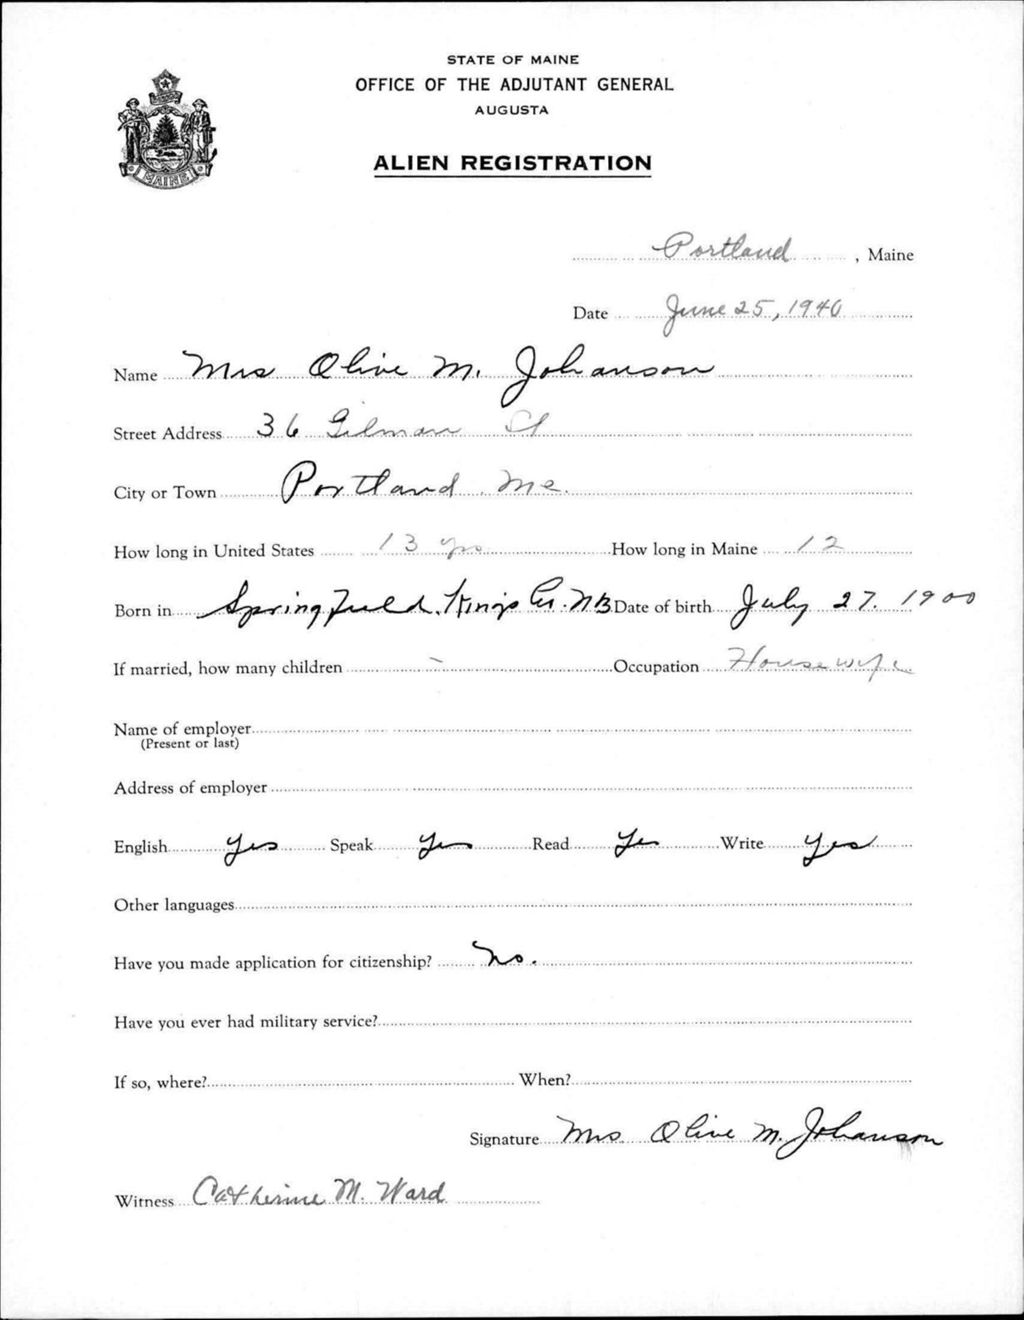 STATE OF MAINE
OFFICE OF THE ADJUTANT GENERAL
AUGUSTA
MAINE
ALIEN REGISTRATION
Portland, Maine
Date June 25, 1940
Name Mrs Olive M. Johanson
Street Address 36 Gilman St
City or Town Portland Me.
How long in United States 13 yrs How long in Maine 12
Born in Springfield, Kings Co. NB Date of birth July 27. 1900
If married, how many children - Occupation Housewife
Name of employer
(Present or last)
Address of employer
English Yes Speak Yes Read Yes Write Yes
Other languages
Have you made application for citizenship? No.
Have you ever had military service?
If so, where? When?
Signature Mrs. Olive M. Johanson
Witness Catherine M. Ward